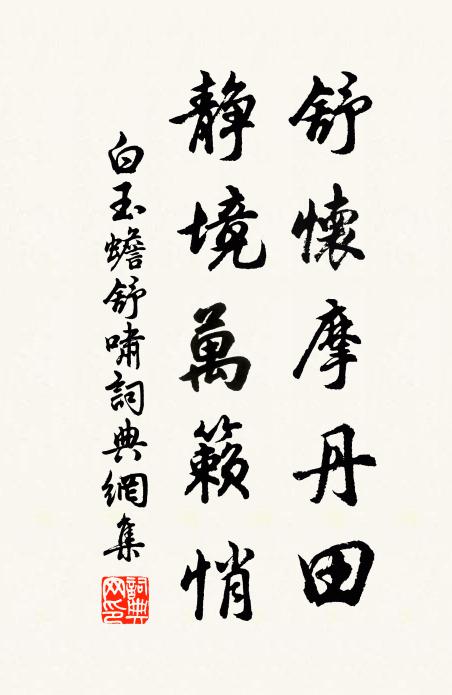 舒懷摩丹田
靜境萬籟悄
白玉蟾舒嘯詞典網集
詞典网印